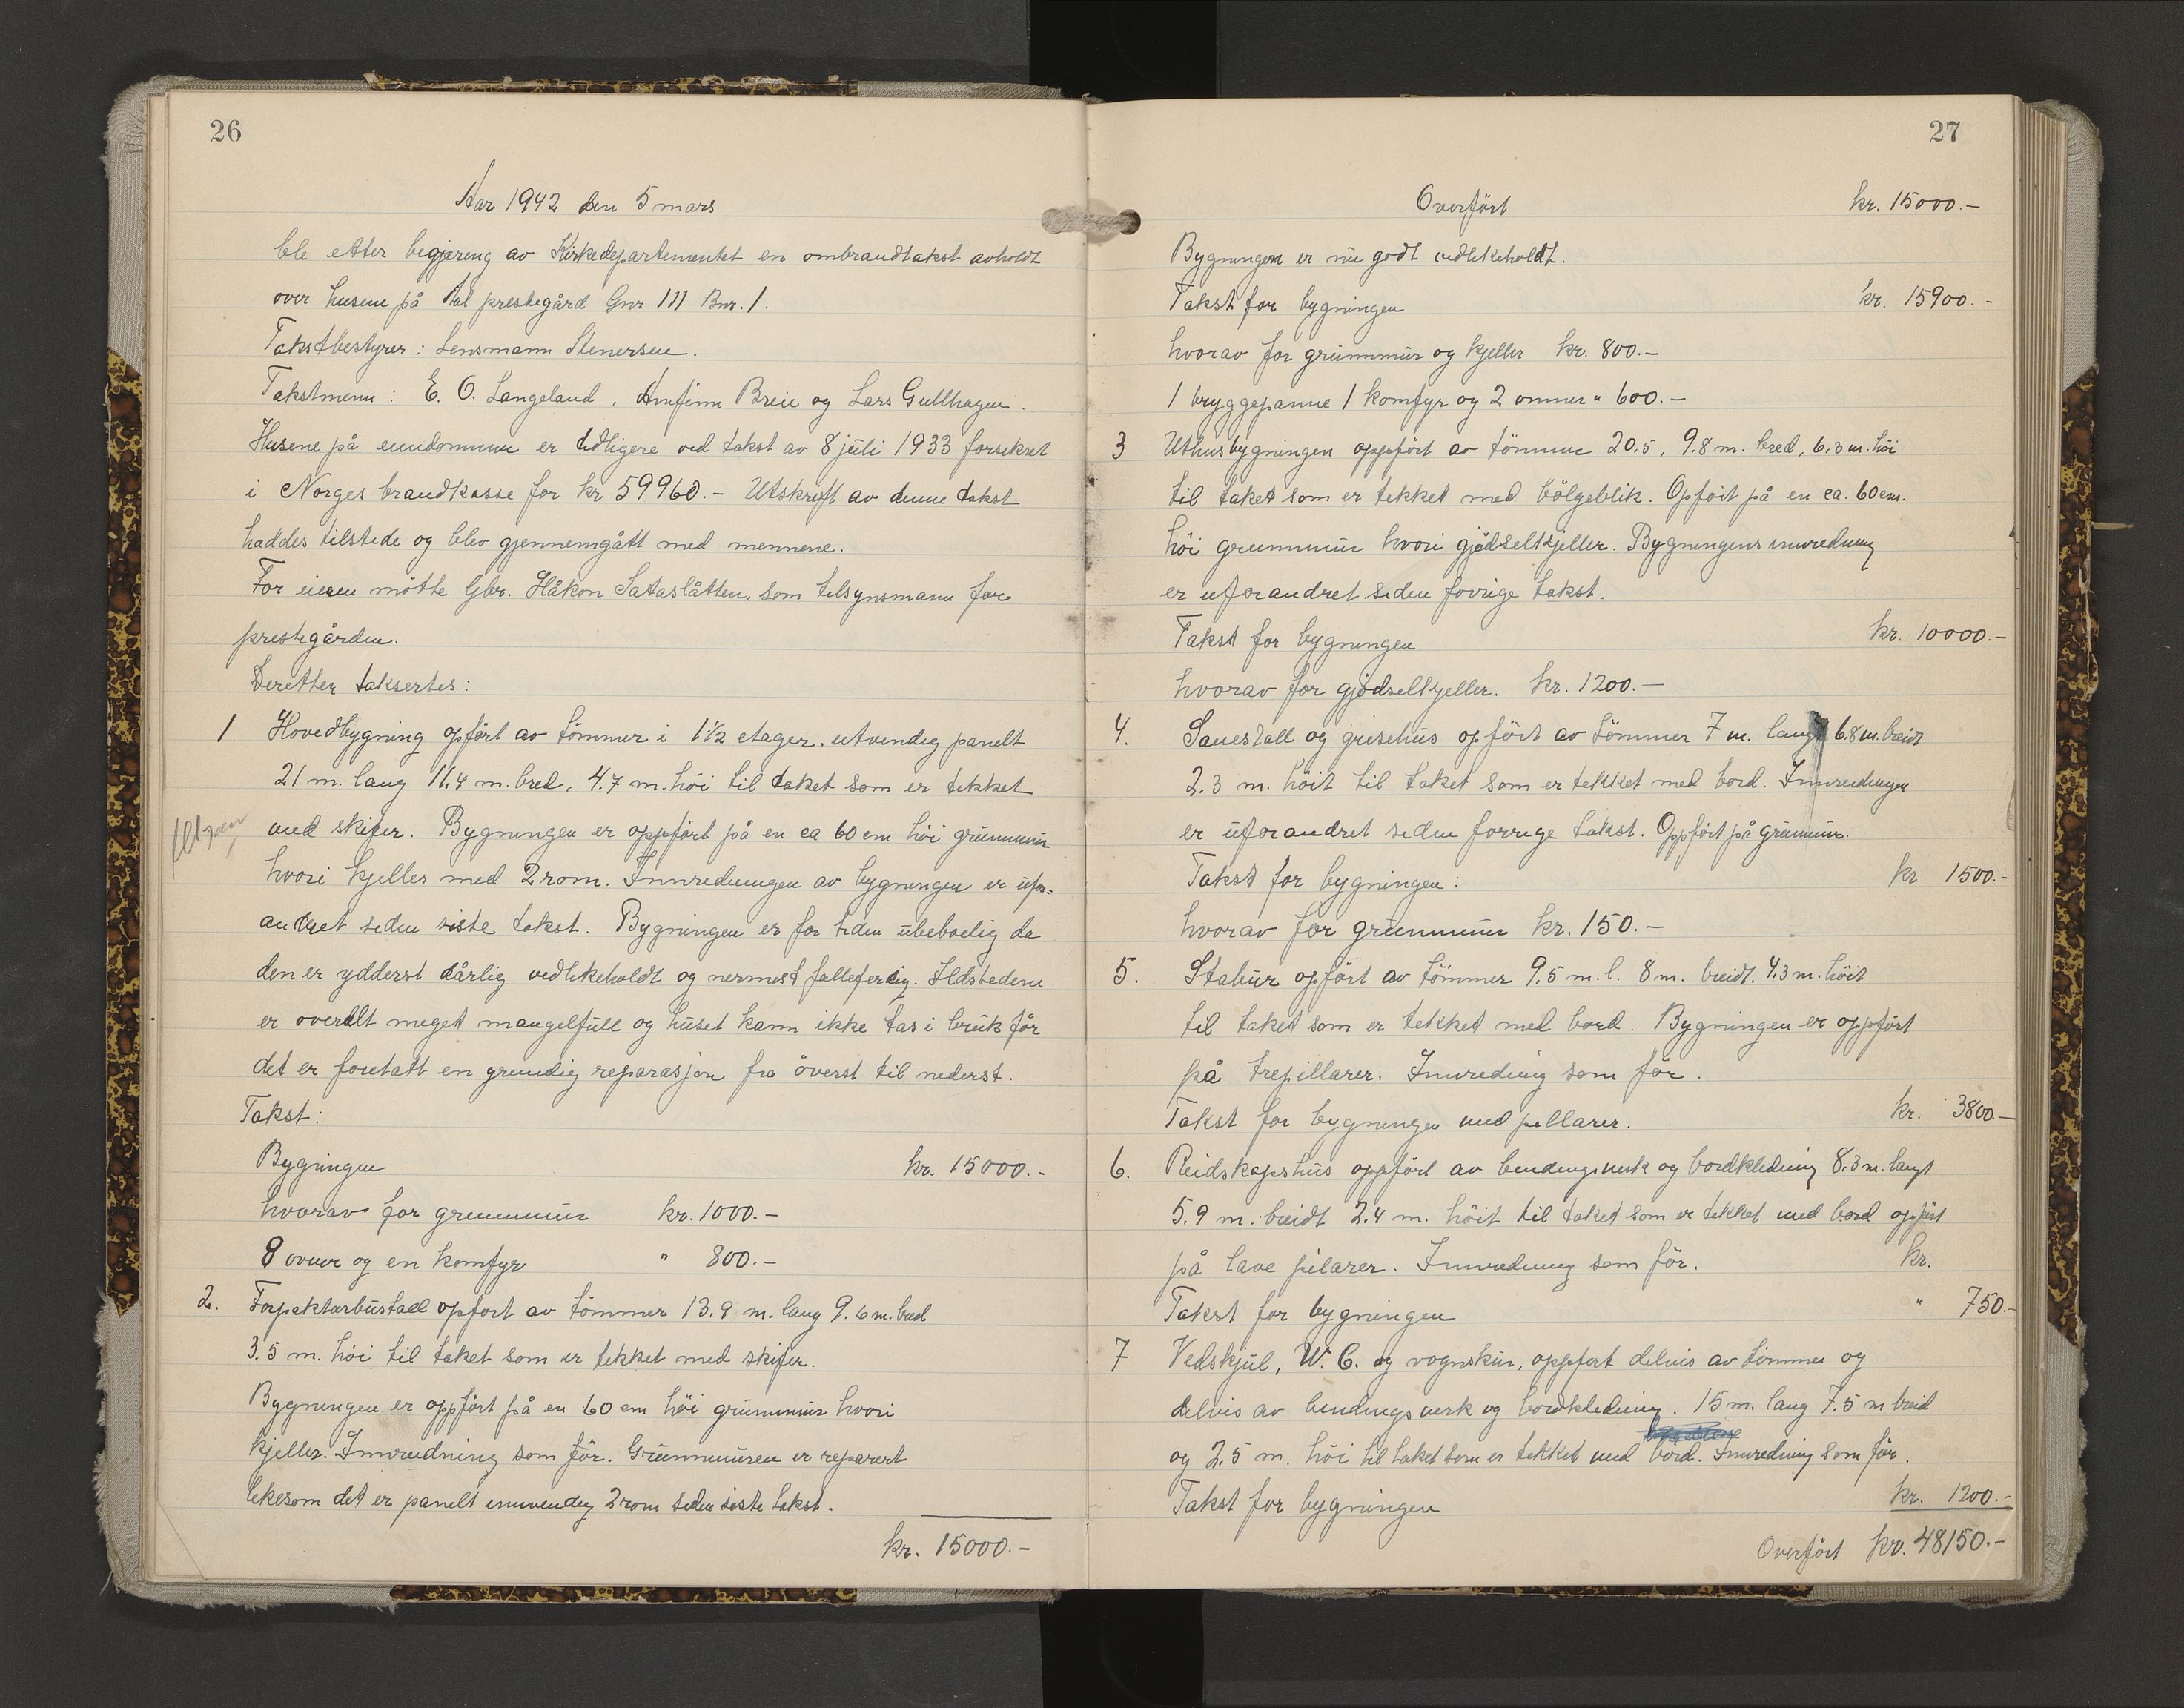 26
Aar 1942 den 5 mars
ble etter begjæring av Kirkedepartementet en ombrandtakst avholdt
over husene på Aal prestegård Gnr 111 Bnr. 1.
Takstbestyrer: Lensmann Stenersen.
Takstmenn: E. O. Langeland, Arnfinn Breie og Lars Gullhagen.
Husene på eiendommen er tidligere ved takst av 8 juli 1933 forsikret
i Norges brandkasse for kr 59960.- Utskrift av denne takst
haddes tilstede og blev gjennemgått med mennene.
For eieren møtte Gbr. Håkon Sataslåtten, som tilsynsmann for
prestegården.
Deretter taksertes:
1 Hovedbygning opfört av tömmer i 1 1/2 etager. utvendig panelt
21 m. lang 11,4 m. bred, 4.7 m. höi til taket som er tekket
med skifer. Bygningen er oppfört på en ca 60 cm höi grunnmur
hvori kjeller med 2 rom. Innredningen av bygningen er ufor-
andret siden siste takst. Bygningen er for tiden ubeboelig da
den er ydderst dårlig vedlikeholdt og nermest falleferdig. Ildstedene
er overalt meget mangelfull og huset kann ikke tas i bruk för
det er foretatt en grundig reparasjon fra överst til nederst.
Takst:
Bygningen kr. 15000.-
hvorav for grunnmur kr. 1000.-
8 ovner og en komfyr " 800.-
2. Forpakterbustad opfort av tömmer 13.9 m. lang 9.6 m. bred
3.5 m. höi til taket som er tekket med skifer.
Bygningen er oppfört på en 60 cm höi grunnmur hvori
kjeller. Innreidning som för. Grunnmuren er reparert
likesom det er panelt innvendig 2 rom siden siste takst.
kr. 15000.-
27
Overfört kr. 15000.-
Bygningen er nu godt vedlikeholdt.
Takst for bygningen kr. 15900.-
hvorav for grunnmur og kjeller kr. 800.-
1 bryggepanne 1 komfyr og 2 omner " 600.-
3 Uthusbygningen oppfört av tömmer 20.5, 9.8 m. bred, 6.3 m. höi
til taket som er tekket med bölgeblik. Opfört på en ca. 60 cm.
höi grunnmur hvori gjödselkjeller. Bygningens innredning
er uforandret siden forrige takst.
Takst for bygningen kr. 10000.-
hvorav for gjödselkjeller. kr. 1200.-
4. Sauestall og grisehus opfört av tömmer 7 m. lang 6.8 m. breidt
2.3 m. höit til taket som er tekket med bord. Innreidningen
er uforandret siden forrige takst. Oppfört på grunnmur.
Takst for bygningen: kr 1500.-
hvorav for grunnmur kr. 150.-
5. Stabur opfört av tömmer 9.5 m. l. 8 m. breidt. 4.3 m. höit
til taket som er tekket med bord. Bygningen er oppfört
på trepillarer. Innreding som för.
Takst for bygningen med pillarer. kr. 3800.-
6. Reidskapshus oppfört av bendingsverk og bordkledning 8.3 m. langt
5.9 m. breidt 2.4 m. höit til taket som er tekket med bord oppfört
på lave pilarer. Innredning som för. kr.
Takst for bygningen " 750.-
7 Vedskjul, W. C. og vognskur, oppfört delvis av tömmer og
delvis av bendingsverk og bordkledning. 15 m. lang 7.5 m breid
og 2.5 m. höi til taket som er tekket med bord. Innredning som för.
Takst for bygningen kr. 1200.-
Overfört kr. 48150.-